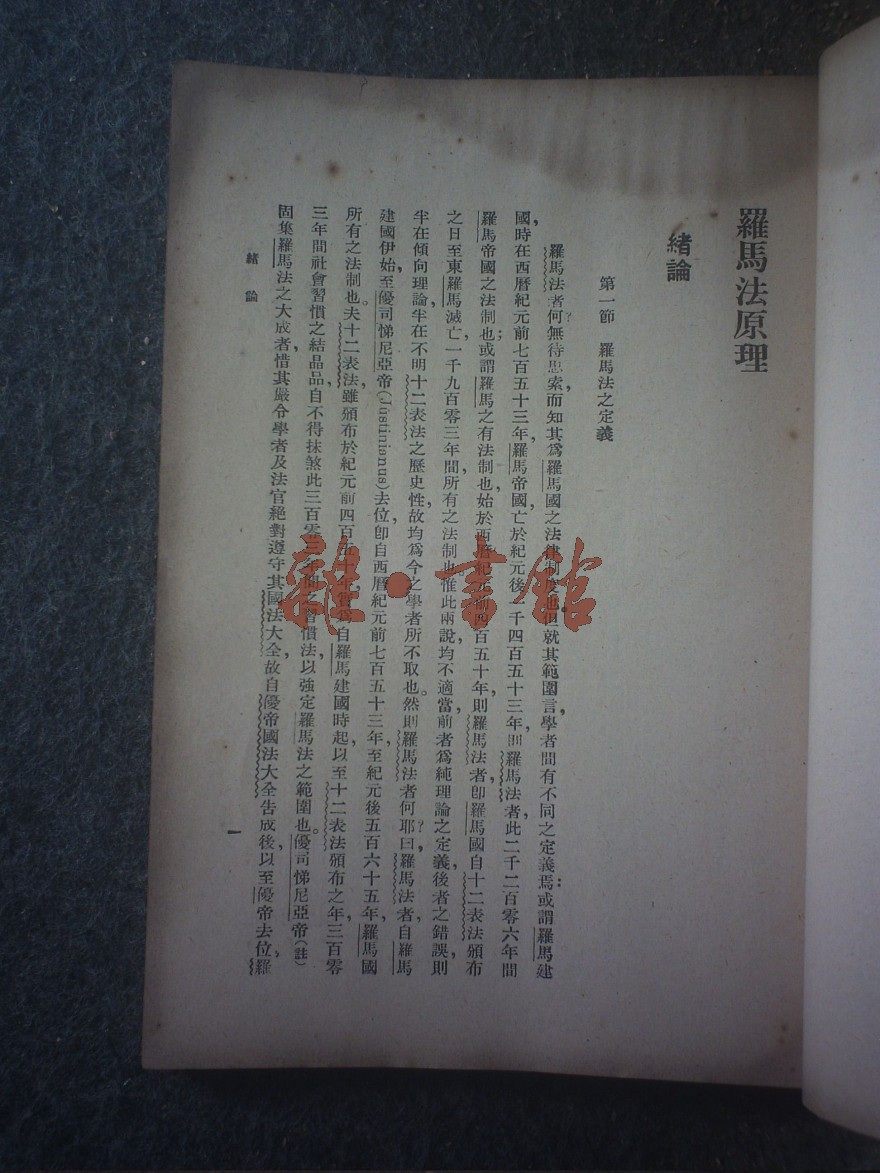 羅馬法原理
緒論
第一節　羅馬法之定義
羅馬法者何？無待思索而知其爲羅馬國之法律制度也。但就其範圍言，學者間有不同之定義焉：或謂羅馬建
國，時在西曆紀元前七百五十三年，羅馬帝國亡於紀元後一千四百五十三年，則羅馬法者，此二千二百零六年間
羅馬帝國之法制也；或謂羅馬之有法制也，始於西曆紀元前四百五十年，則羅馬法者，卽羅馬國自十二表法頒布
之日至東羅馬滅亡一千九百零三年間，所有之法制也。惟此兩說均不適當，前者爲純理論之定義，後者之錯誤，則
半在傾向理論，半在不明十二表法之歷史性，故均爲今之學者所不取也。然則羅馬法者何耶？曰，羅馬法者，自羅馬
建國伊始，至優司悌尼亞帝(Justinianus)去位，卽自西曆紀元前七百五十三年，至紀元後五百六十五年，羅馬國
所有之法制也。夫十二表法，雖頒布於紀元前四百五十年，實爲自羅馬建國時起，以至十二表法頒布之年，三百零
三年間社會習慣之結晶品，自不得抹煞此三百零三年間之習慣法，以強定羅馬法之範圍也。優司悌尼亞帝（註）
固集羅馬法之大成者，惜其嚴令學者及法官絕對遵守其國法大全，故自優帝國法大全告成後，以至優帝去位，羅
緒論
一
雜·書館